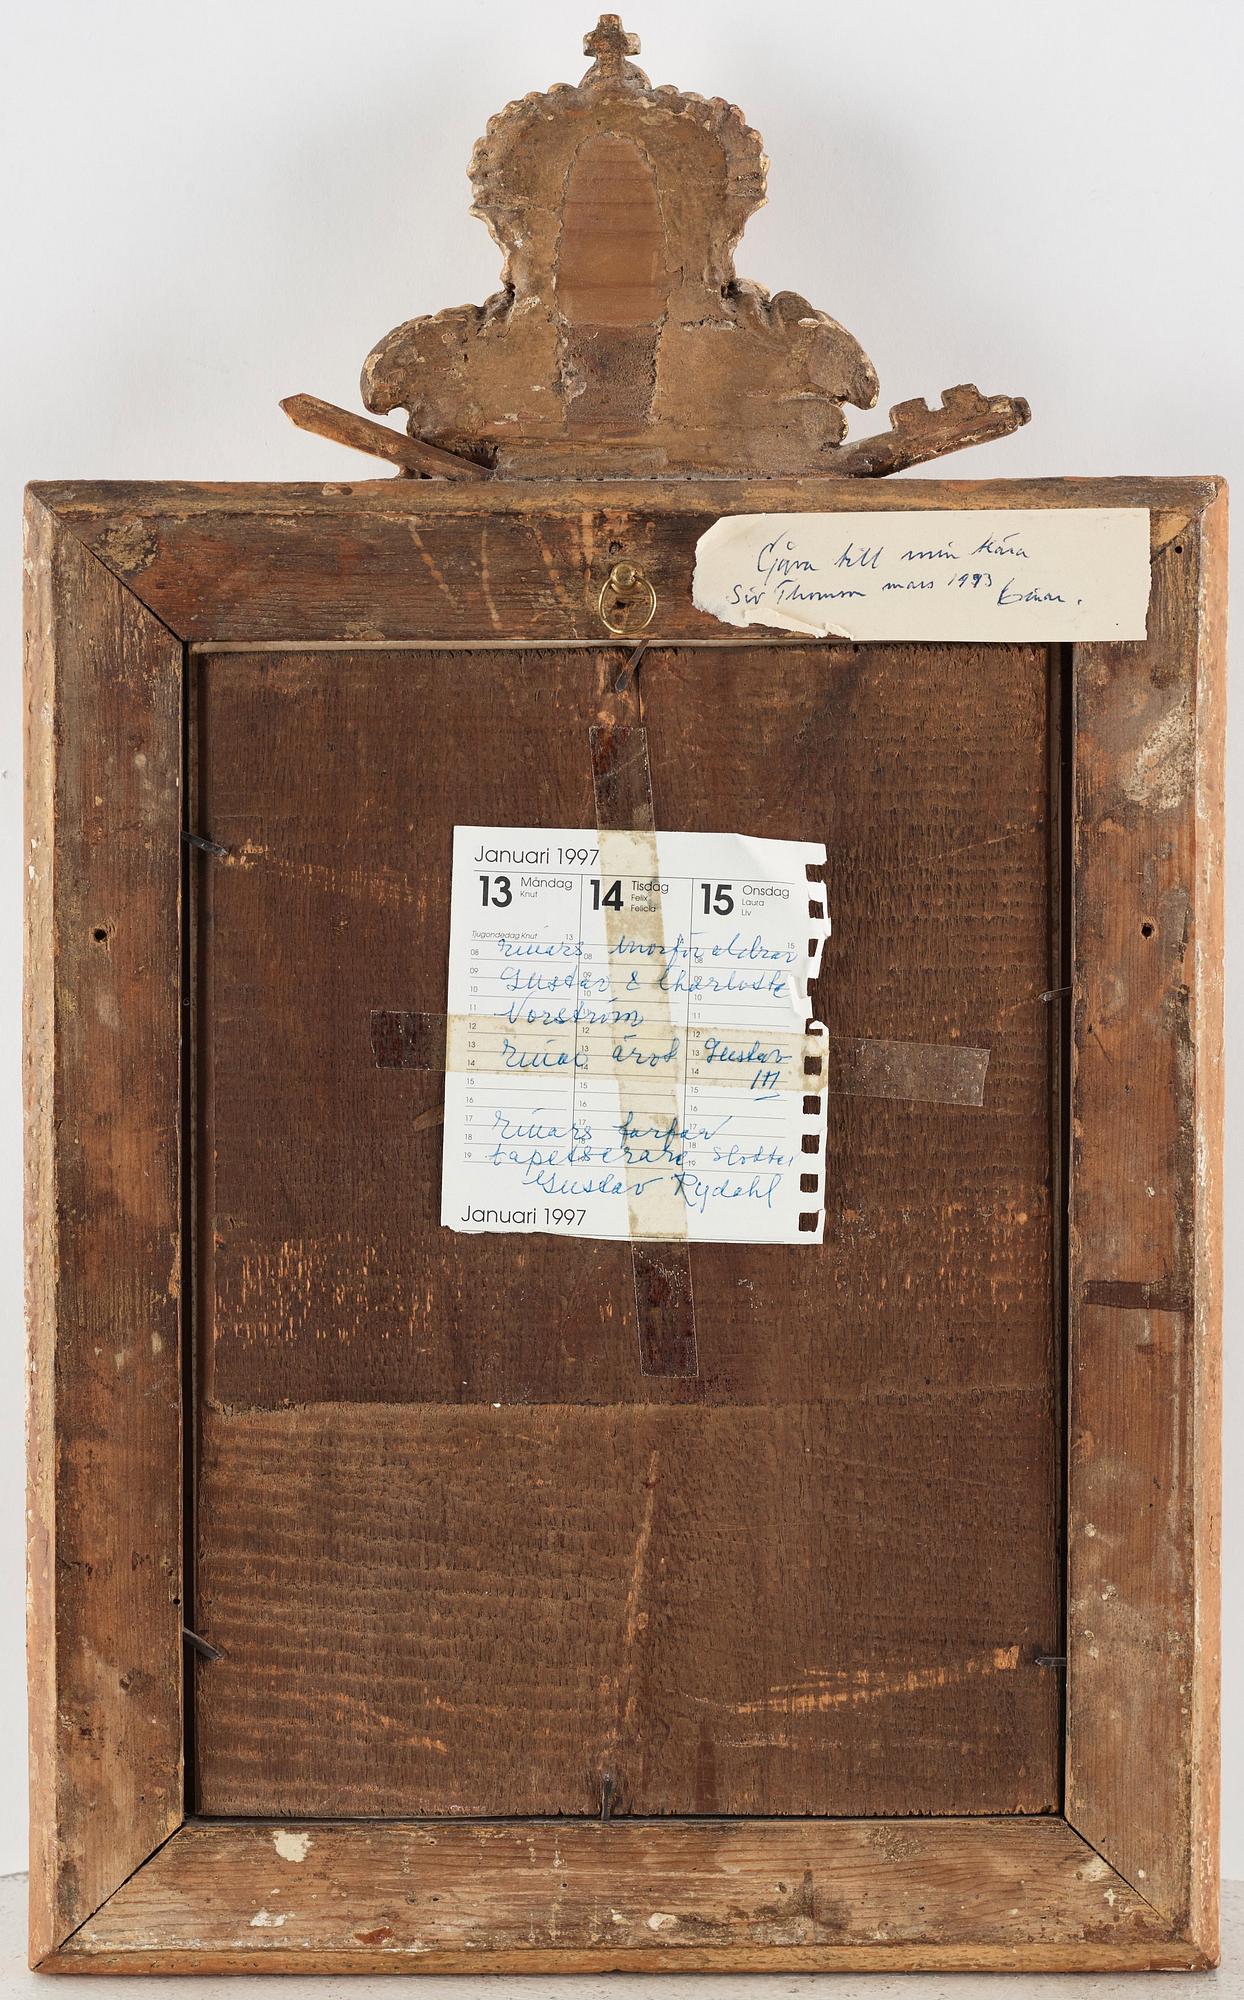 Gåva till min kära
Siv Thomson mars 1993 Einar.
Januari 1997
13 Måndag Knut
14 Tisdag Felix Felicia
15 Onsdag Laura Liv
Tjugondedag Knut 13
15
Einars morföräldrar
Gustav & Charlotte
Norström
Einar ärvt Gustav
III
Einars farfar
tapetserare slottet
Gustav Rydahl
Januari 1997